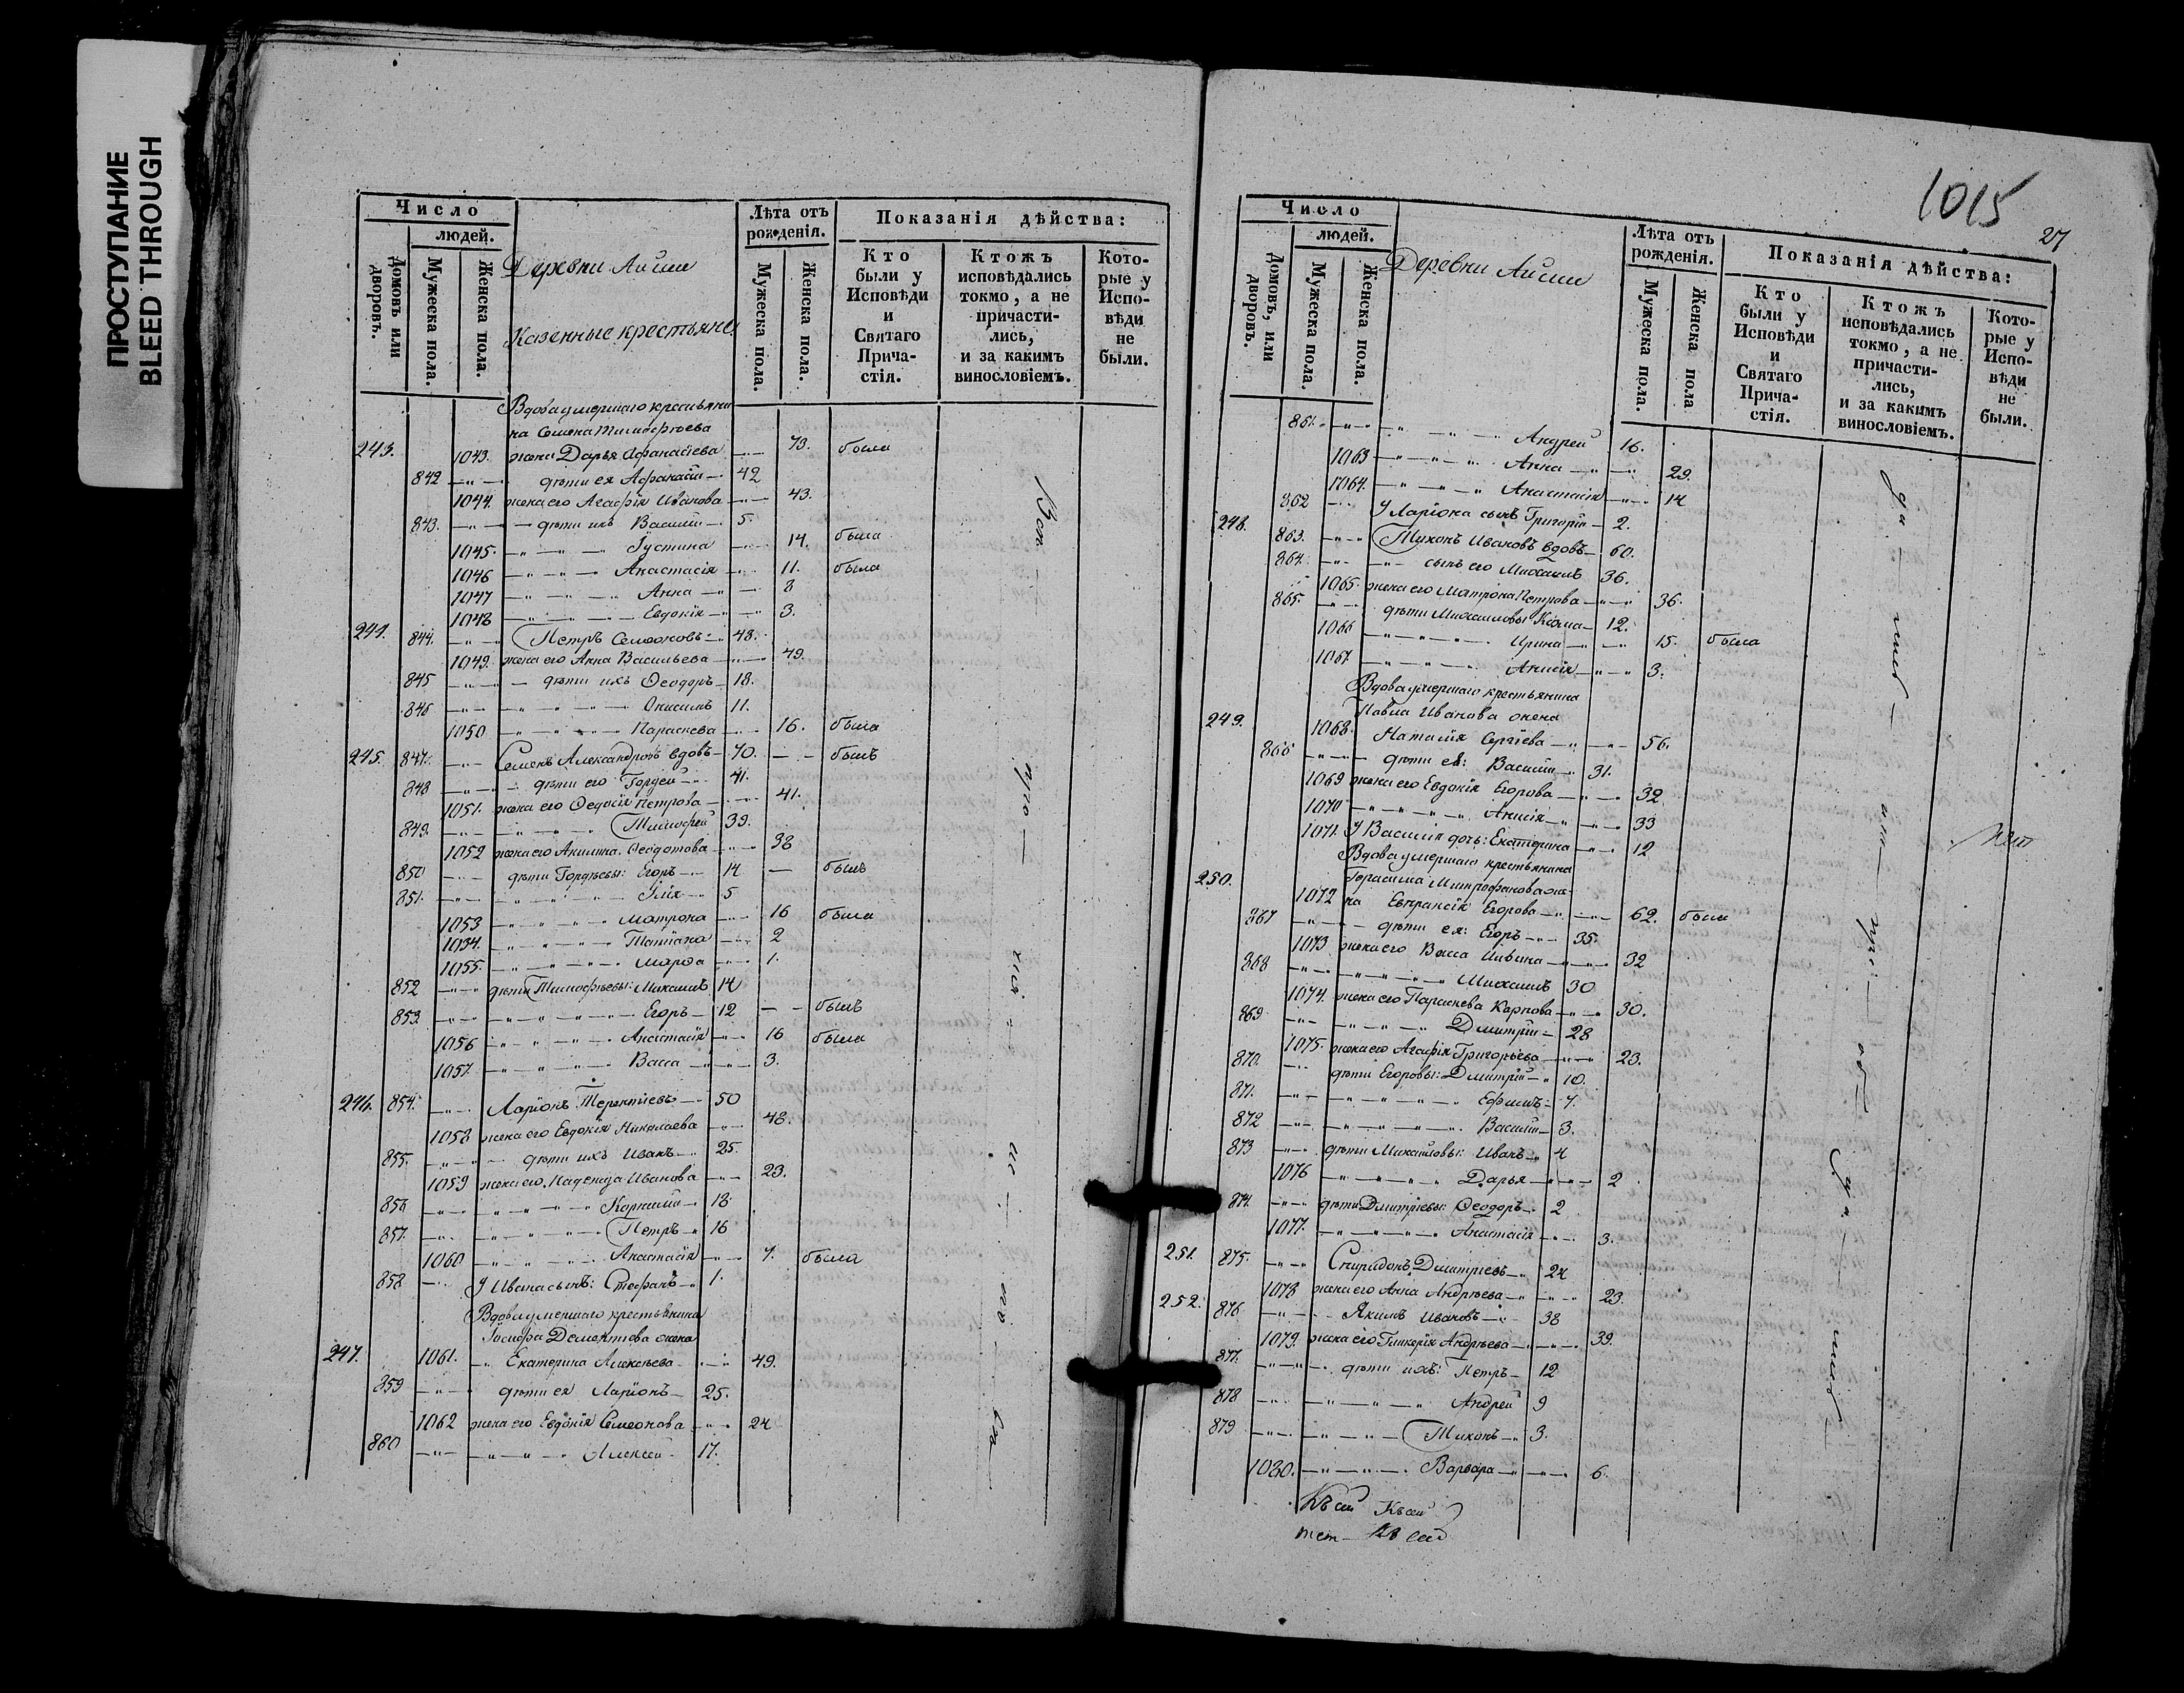 ПРОСТУПАНИЕ
BLEED THROUGH
Число
людей.
Домовъ или дворовъ.
Мужеска пола.
Женска пола.
Деревни Аиши
Казенные крестьяне
Лѣта отъ рожденія.
Мужеска пола.
Женска пола.
Показанія дѣйства:
Кто были у Исповѣди и Святаго Прича-стія.
Ктожъ исповѣдались токмо, а не причасти-лись, и за какимъ винословіемъ.
Кото-рые у Испо-вѣди не были.
Вдова умершаго крестьяни
на Семена Тимофѣева
243. 1043. жена Дарья Афанасіева 73. была
842 дѣти ея Афанасій 42
1044. жена его Агафія Иванова 43.
843. дѣти ихъ Василій 5.
1045. Іустина 14. была
1046 Анастасія 11. была
1047 Анна 8
1048 Евдокія 3.
244. 844. Петръ Семеоновъ 48.
1049. жена его Анна Васильева 49.
845 дѣти ихъ Ѳеодоръ 18.
846 Онисимъ 11.
1050 Параскева 16. была
245. 847. Семенъ Александровъ вдовъ 70. былъ
848 дѣти его Гордей 41.
1051. жена его Ѳедосія Петрова 41.
849. Тимофей 39.
1052 жена его Акилина Ѳеодотова 38
850 дѣти Гордѣевы: Егоръ 14 былъ
851. Илія 5
1053 Матрона 16 была
1054. Татіана 2
1055. Марѳа 1.
852 дѣти Тимофѣевы: Михаилъ 14
853. Егоръ 12 былъ
1056 Анастасія 16 была
1057. Васса 3.
246. 854. Ларіонъ Терентіевъ 50
1058 жена его Евдокія Николаева 48.
855. дѣти ихъ Иванъ 25.
1059 жена его Надежда Иванова 23.
856 Корнилій 18
857. Петръ 16
1060 Анастасія 7. была
858 У Ивана сынъ: Стефанъ 1.
Вдова умершаго крестьянина
Іосифа Дементіева жена
247. 1061. Екатерина Алексѣева 49.
859 дѣти ея Ларіонъ 25.
1062 жена его Евдокія Семеонова 24
860 Алексей 17.
1015
27
Число
людей.
Домовъ, или дворовъ.
Мужеска пола.
Женска пола.
Деревни Аиши
Лѣта отъ рожденія.
Мужеска пола.
Женска пола
Показанія дѣйства:
Кто были у Исповѣди и Святаго Прича-стія.
Ктожъ исповѣдались токмо, а не причасти-лись, и за какимъ винословіемъ.
Кото-рые у Испо-вѣди не были.
861. Андрей 16.
1063 Анна 29.
1064. Анастасія 14
862 У Ларіона сынъ Григорій 2.
248. 863. Тихонъ Ивановъ вдовъ 60.
864. сынъ его Михаилъ 36.
1065. жена его Матрона Петрова 36.
865. дѣти Михаиловы Козма 12.
1066 Ирина 15. была
1067. Анисія 3.
Вдова умершаго крестьянина
Павла Иванова жена
249. 1068. Наталія Сергіева 56.
866 дѣти ея: Василій 31.
1069 жена его Евдокія Егорова 32
1070 Анисія 33
1071. У Василія дочь: Екатерина 12
Вдова умершаго крестьянина
Герасима Митрофанова же-
250. 1072 на Евпраксія Егорова 62. была
867 дѣти ея: Егоръ 35.
1073 жена его Васса 32
868 Михаилъ 30
1074. жена его Параскева Карпова 30.
869 Димитрій 28
1075. жена его Агафія Григорьева 23.
870. дѣти Егоровы: Димитрій 10.
871. Ефимъ 7.
872 Василій 3.
873 дѣти Михайловы: Иванъ 4
1076 Дарья 2
874. дѣти Димитріевы: Ѳеодоръ 2
1077. Анастасія 3.
251. 875. Спиридонъ Димитріевъ 24
1078 жена его Анна Андрѣева 23.
252. 876 Якимъ Ивановъ 38
1079. жена его Гликерія Андрѣева 39.
877. дѣти ихъ: Петръ 12
878 Андрей 9
879 Тихонъ 3.
1080. Варвара 6.